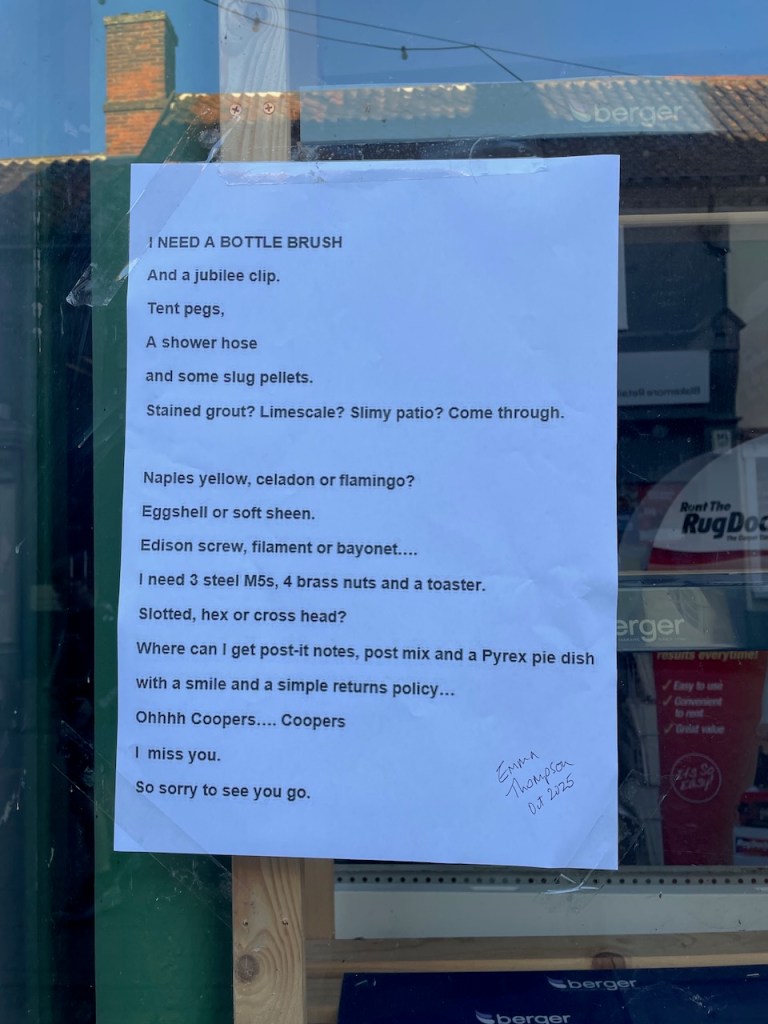 berger
I NEED A BOTTLE BRUSH
And a jubilee clip.
Tent pegs,
A shower hose
and some slug pellets.
Stained grout? Limescale? Slimy patio? Come through.
Naples yellow, celadon or flamingo?
Eggshell or soft sheen.
Edison screw, filament or bayonet....
I need 3 steel M5s, 4 brass nuts and a toaster.
Slotted, hex or cross head?
Where can I get post-it notes, post mix and a Pyrex pie dish
with a smile and a simple returns policy...
Ohhhh Coopers.... Coopers
I miss you.
So sorry to see you go.
Emma
Thompson
Oct 2025
Rent The
RugDoc
erger
results everytime!
✓ Easy to use
✓ Convenient
to rent
✓ Great value
It's So
EASY
berger
berger